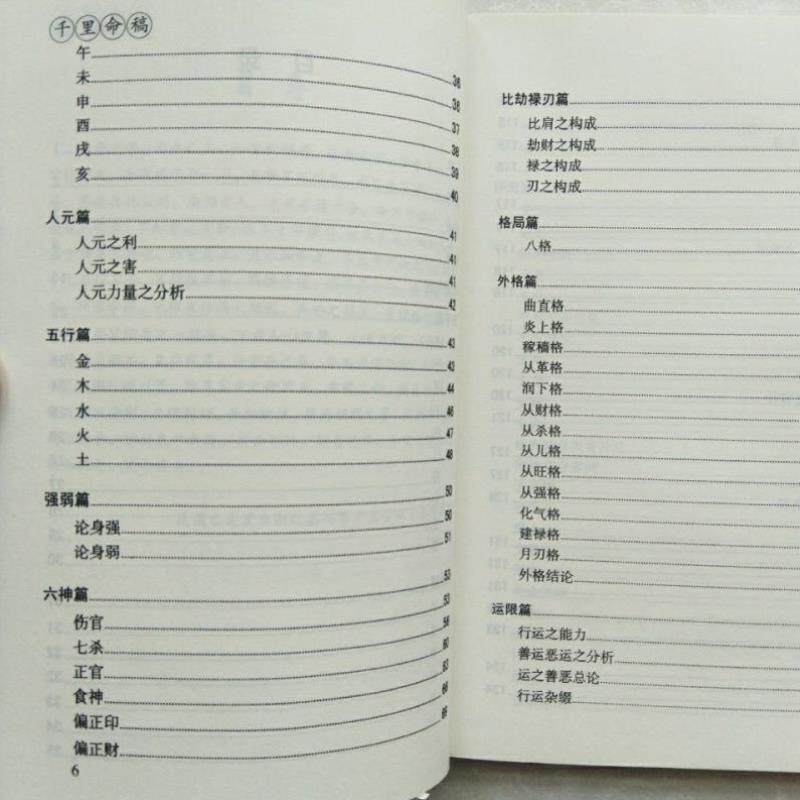 千里命稿
午 36
未 36
申 37
酉 38
戌 39
亥 40
人元篇 41
人元之利 41
人元之害 41
人元力量之分析 42
五行篇 43
金 43
木 44
水 46
火 47
土 48
强弱篇 50
论身强 50
论身弱 51
六神篇 53
伤官 53
七杀 56
正官 60
食神 63
偏正印 66
偏正财 69
6
比劫禄刃篇
比肩之构成
劫财之构成
禄之构成
刃之构成
格局篇
八格
外格篇
曲直格
炎上格
稼穑格
从革格
润下格
从财格
从杀格
从儿格
从旺格
从强格
化气格
建禄格
月刃格
外格结论
运限篇
行运之能力
善运恶运之分析
运之善恶总论
行运杂缀